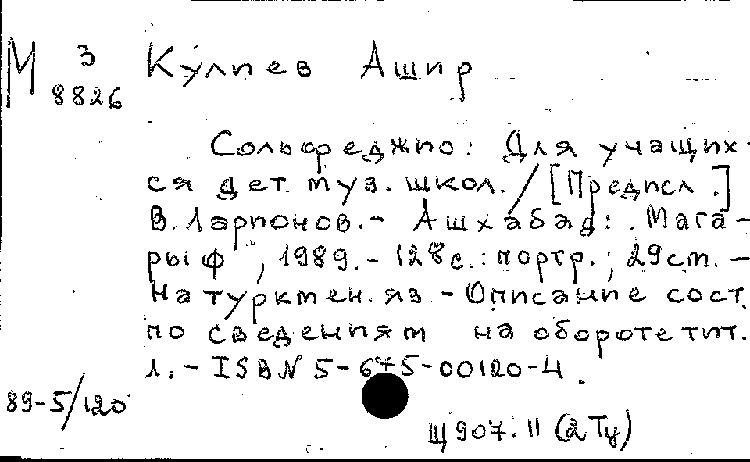 М 3 Кулиев Ашир
8826
Сольфеджио: Для учащих-
ся дет. муз. школ. / [Предисл.]
В. Ларионов. - Ашхабад: Мага-
рыф, 1989. - 128 с.: портр.; 29 см. -
На туркмен. яз. - Описание сост.
по сведениям на обороте тит.
л. - ISBN 5-675-00120-4.
89-5/120
Щ907.11 (2Ту)